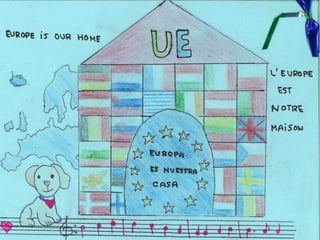 EUROPE is OUR HOME
UE
L'EUROPE
EST
NOTRE
MAISON
EUROPA
ES NUESTRA
CASA